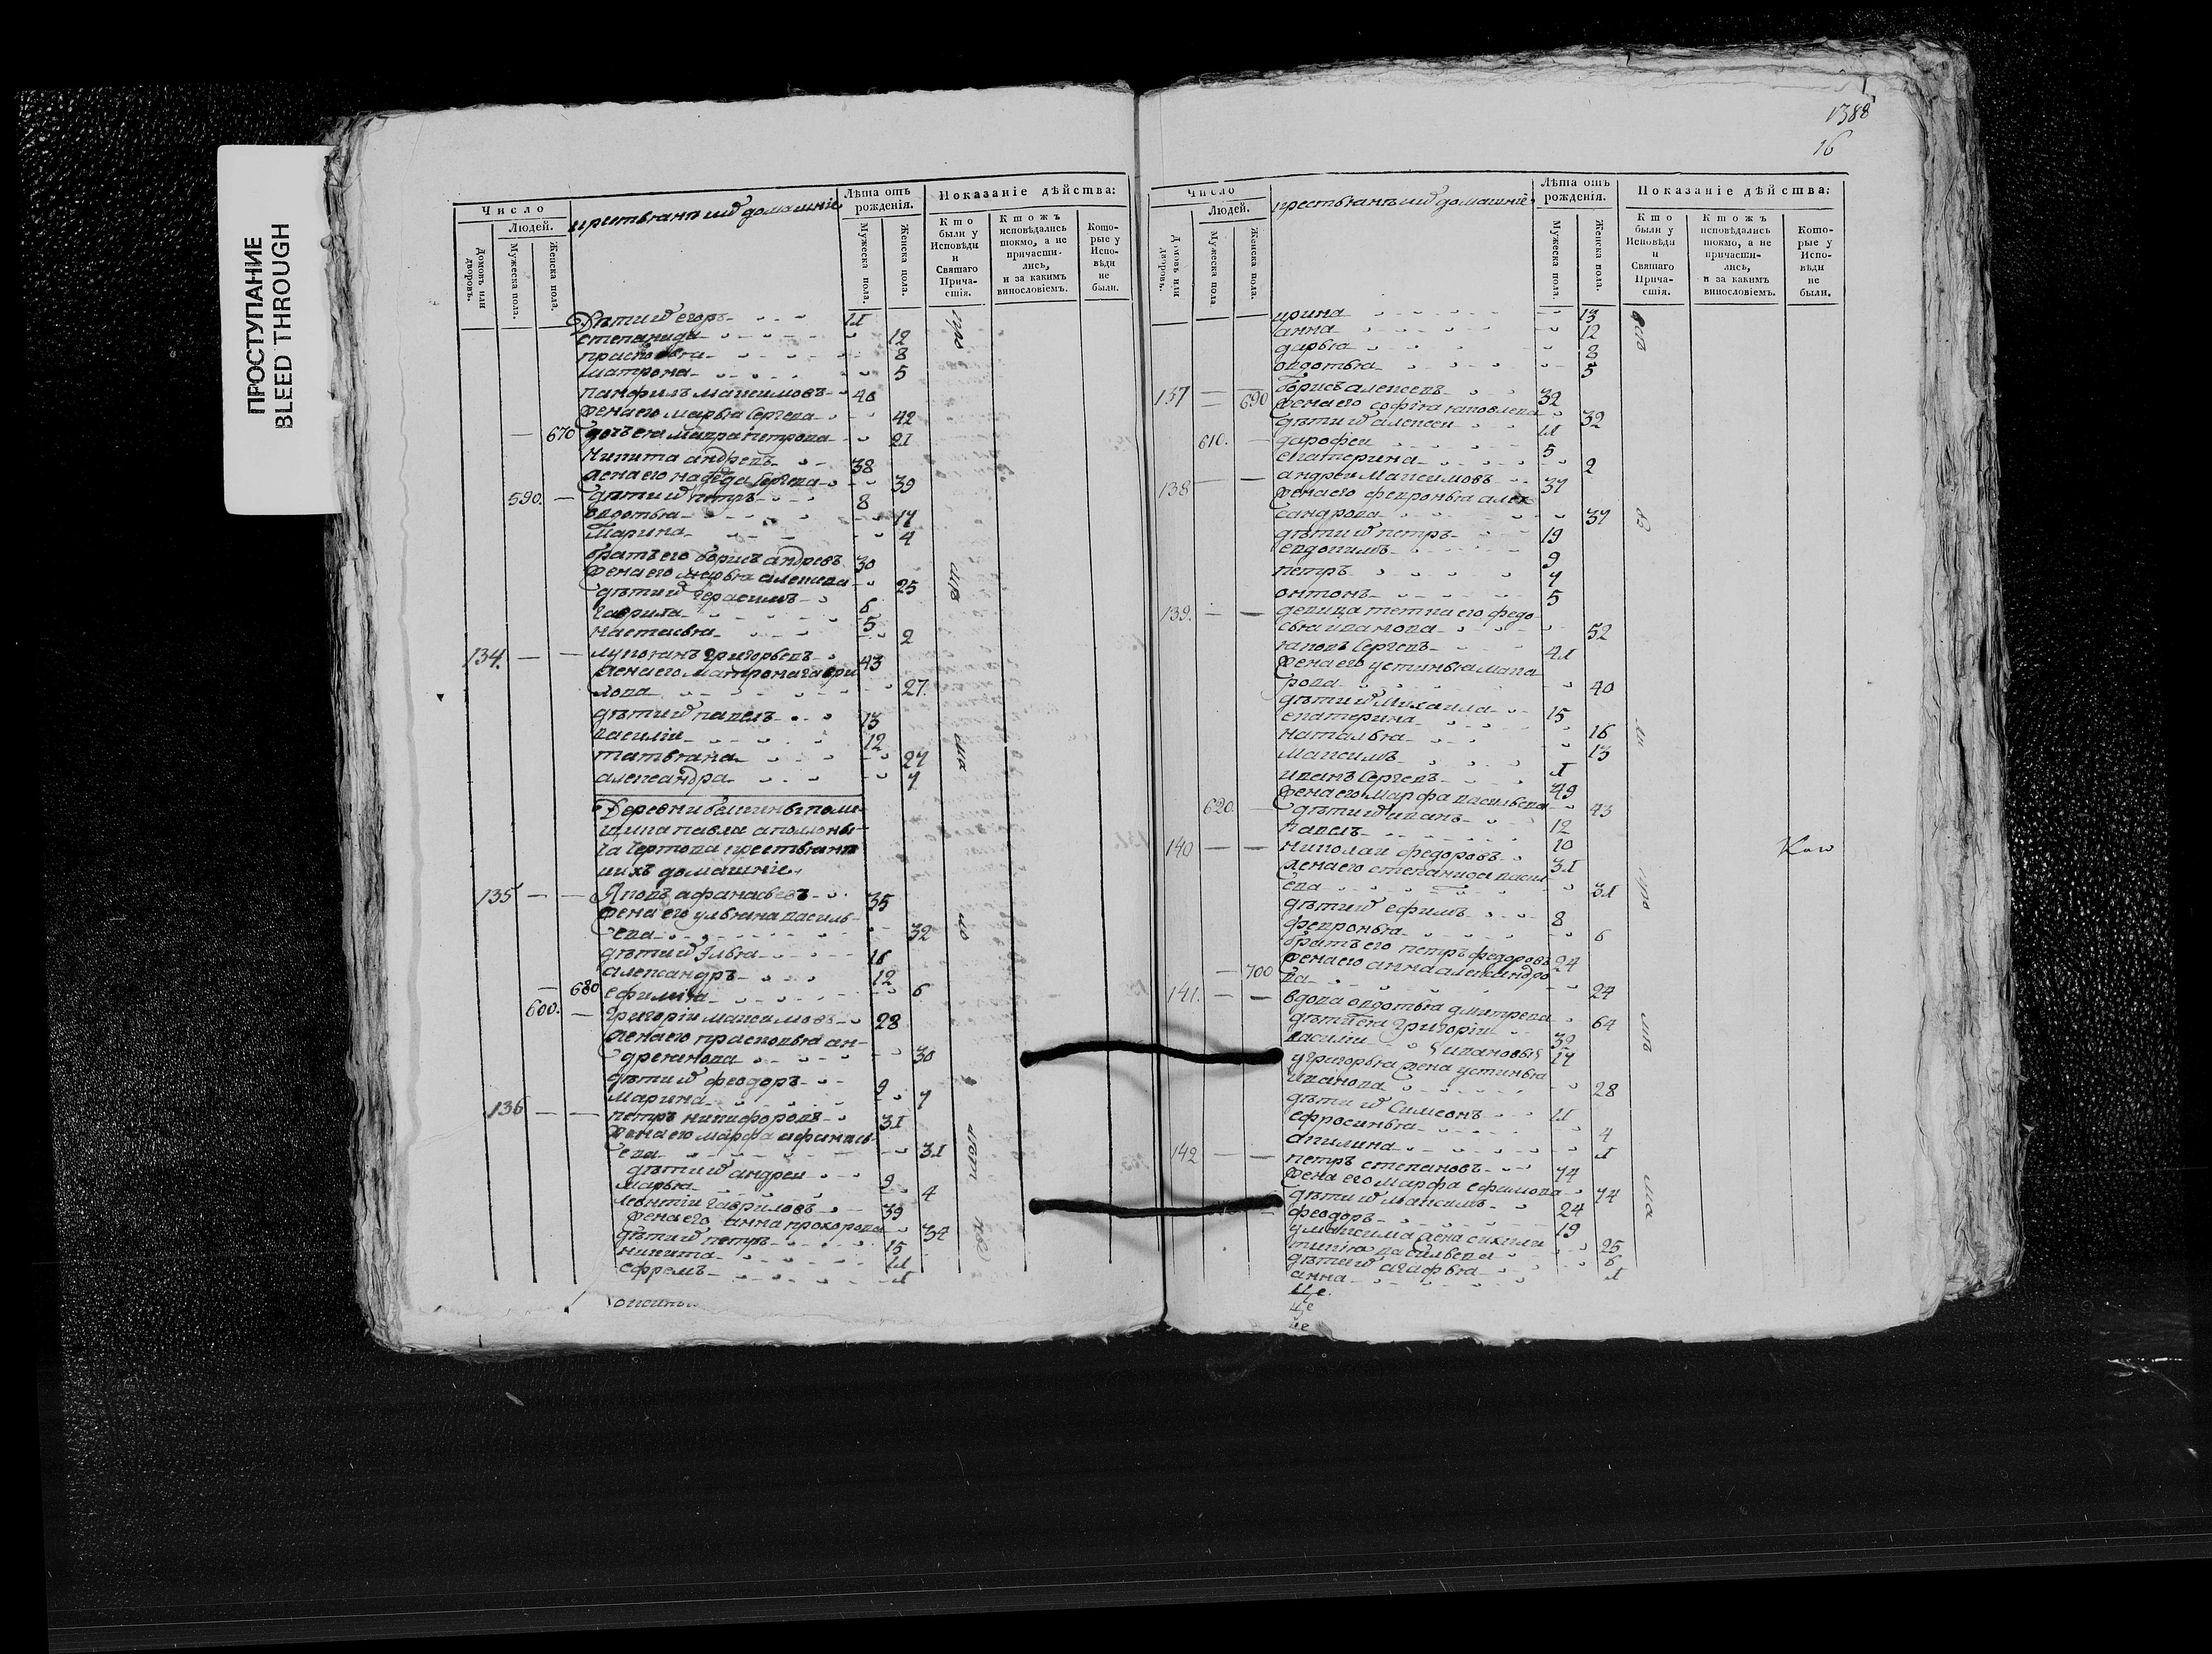 ПРОСТУПАНИЕ
BLEED THROUGH
Число
Людей.
Домовъ или дворовъ.
Мужеска пола.
Женска пола.
крестьянъ ихъ домашніе
Лѣта отъ рожденія.
Мужеска пола.
Женска пола.
Показаніе дѣйства:
Кто были у Исповѣди и Святаго Причастія.
Ктожъ исповѣдались токмо, а не причастились, и за какимъ винословіемъ.
Которые у Исповѣди не были.
Дѣти ихъ егоръ 11
степанида 12
прасковья 8
матрона 5
панфилъ максимовъ 40
жена его марья сергева 42
670 дочь ея мавра петрова 21
Никита андревъ 38
жена его сергева 39
590. дѣти ихъ петръ 8
овдотья 17
Марина 4
братъ его борисъ андревъ 30
жена его марья алексева 25
дѣти ихъ герасимъ 6
гаврила 5
настасья 2
134. лукоянъ григорьевъ 43
жена его матрона гаври
лова 27
дѣти ихъ павелъ 13
василіи 12
татьяна 27
александра 7
Деревни поме
щика павла аполоны
ча чертова крестьяня
ихъ домашніе
135 Яковъ афанасьевъ 35
жена его ульяна василь
ева 32
дѣти ихъ Илья 16
александръ 12
680 ефимія 6
600. григоріи максимовъ 28
жена его прасковья ан-
дреянова 30
дѣти ихъ феодоръ 9
марина 7
136 петръ никифоровъ 31
жена его марфа
ева 31
дѣти ихъ андреи 9
марья 4
леонтіи гавриловъ 39
жена его анна прохорова 34
дѣти ихъ петръ 15
никита 11
ефремъ 1
1388
16
Число
Людей.
Домовъ или дворовъ.
Мужеска пола
Женска пола.
крестьянъ ихъ домашніе
Лѣта отъ рожденія.
Мужеска пола.
Женска пола.
Показаніе дѣйства:
Кто были у Исповѣди и Святаго Причастія.
Ктожъ исповѣдались токмо, а не причастились, и за какимъ винословіемъ.
Которые у Исповѣди не были.
ирина 13
анна 12
дарья 8
овдотья 5
137 690 борисъ алексевъ 32
жена его софія яковлева 32
дѣти ихъ алексеи 11
610. дарофеи 5
екатерина 2
138 андреи максимовъ 37
жена его февронья алек
сандрова 37
дѣти ихъ петръ 19
евдокимъ 9
петръ 7
онтонъ 5
139. девица тетка его федо
сья иванова 52
яковъ сергевъ 41
жена его устинья мака
рова 40
дѣти ихъ михаила 15
екатерина 16
наталья 13
максимъ 1
иванъ сергевъ 49
жена его марфа васильева 43
620. дѣти ихъ иванъ 12
павелъ 10
140 николаи федоровъ 31
жена его степанида васил
ева 31
дѣти ихъ ефимъ 8
февронья 6
братъ его петръ федоровъ 24
жена его анна александро
700 ва 24
141. вдова овдотья дмитрева 64
дѣти ея григоріи 32
василіи ивановы 17
у григорья жена устинья
иванова 28
дѣти ихъ симеонъ 11
ефросинья 4
акилина 1
142 петръ степановъ 74
жена его марфа ефимова 74
дѣти ихъ максимъ 24
феодоръ 19
у максима жена
васильева 25
дѣти ихъ агафья 6
анна 1